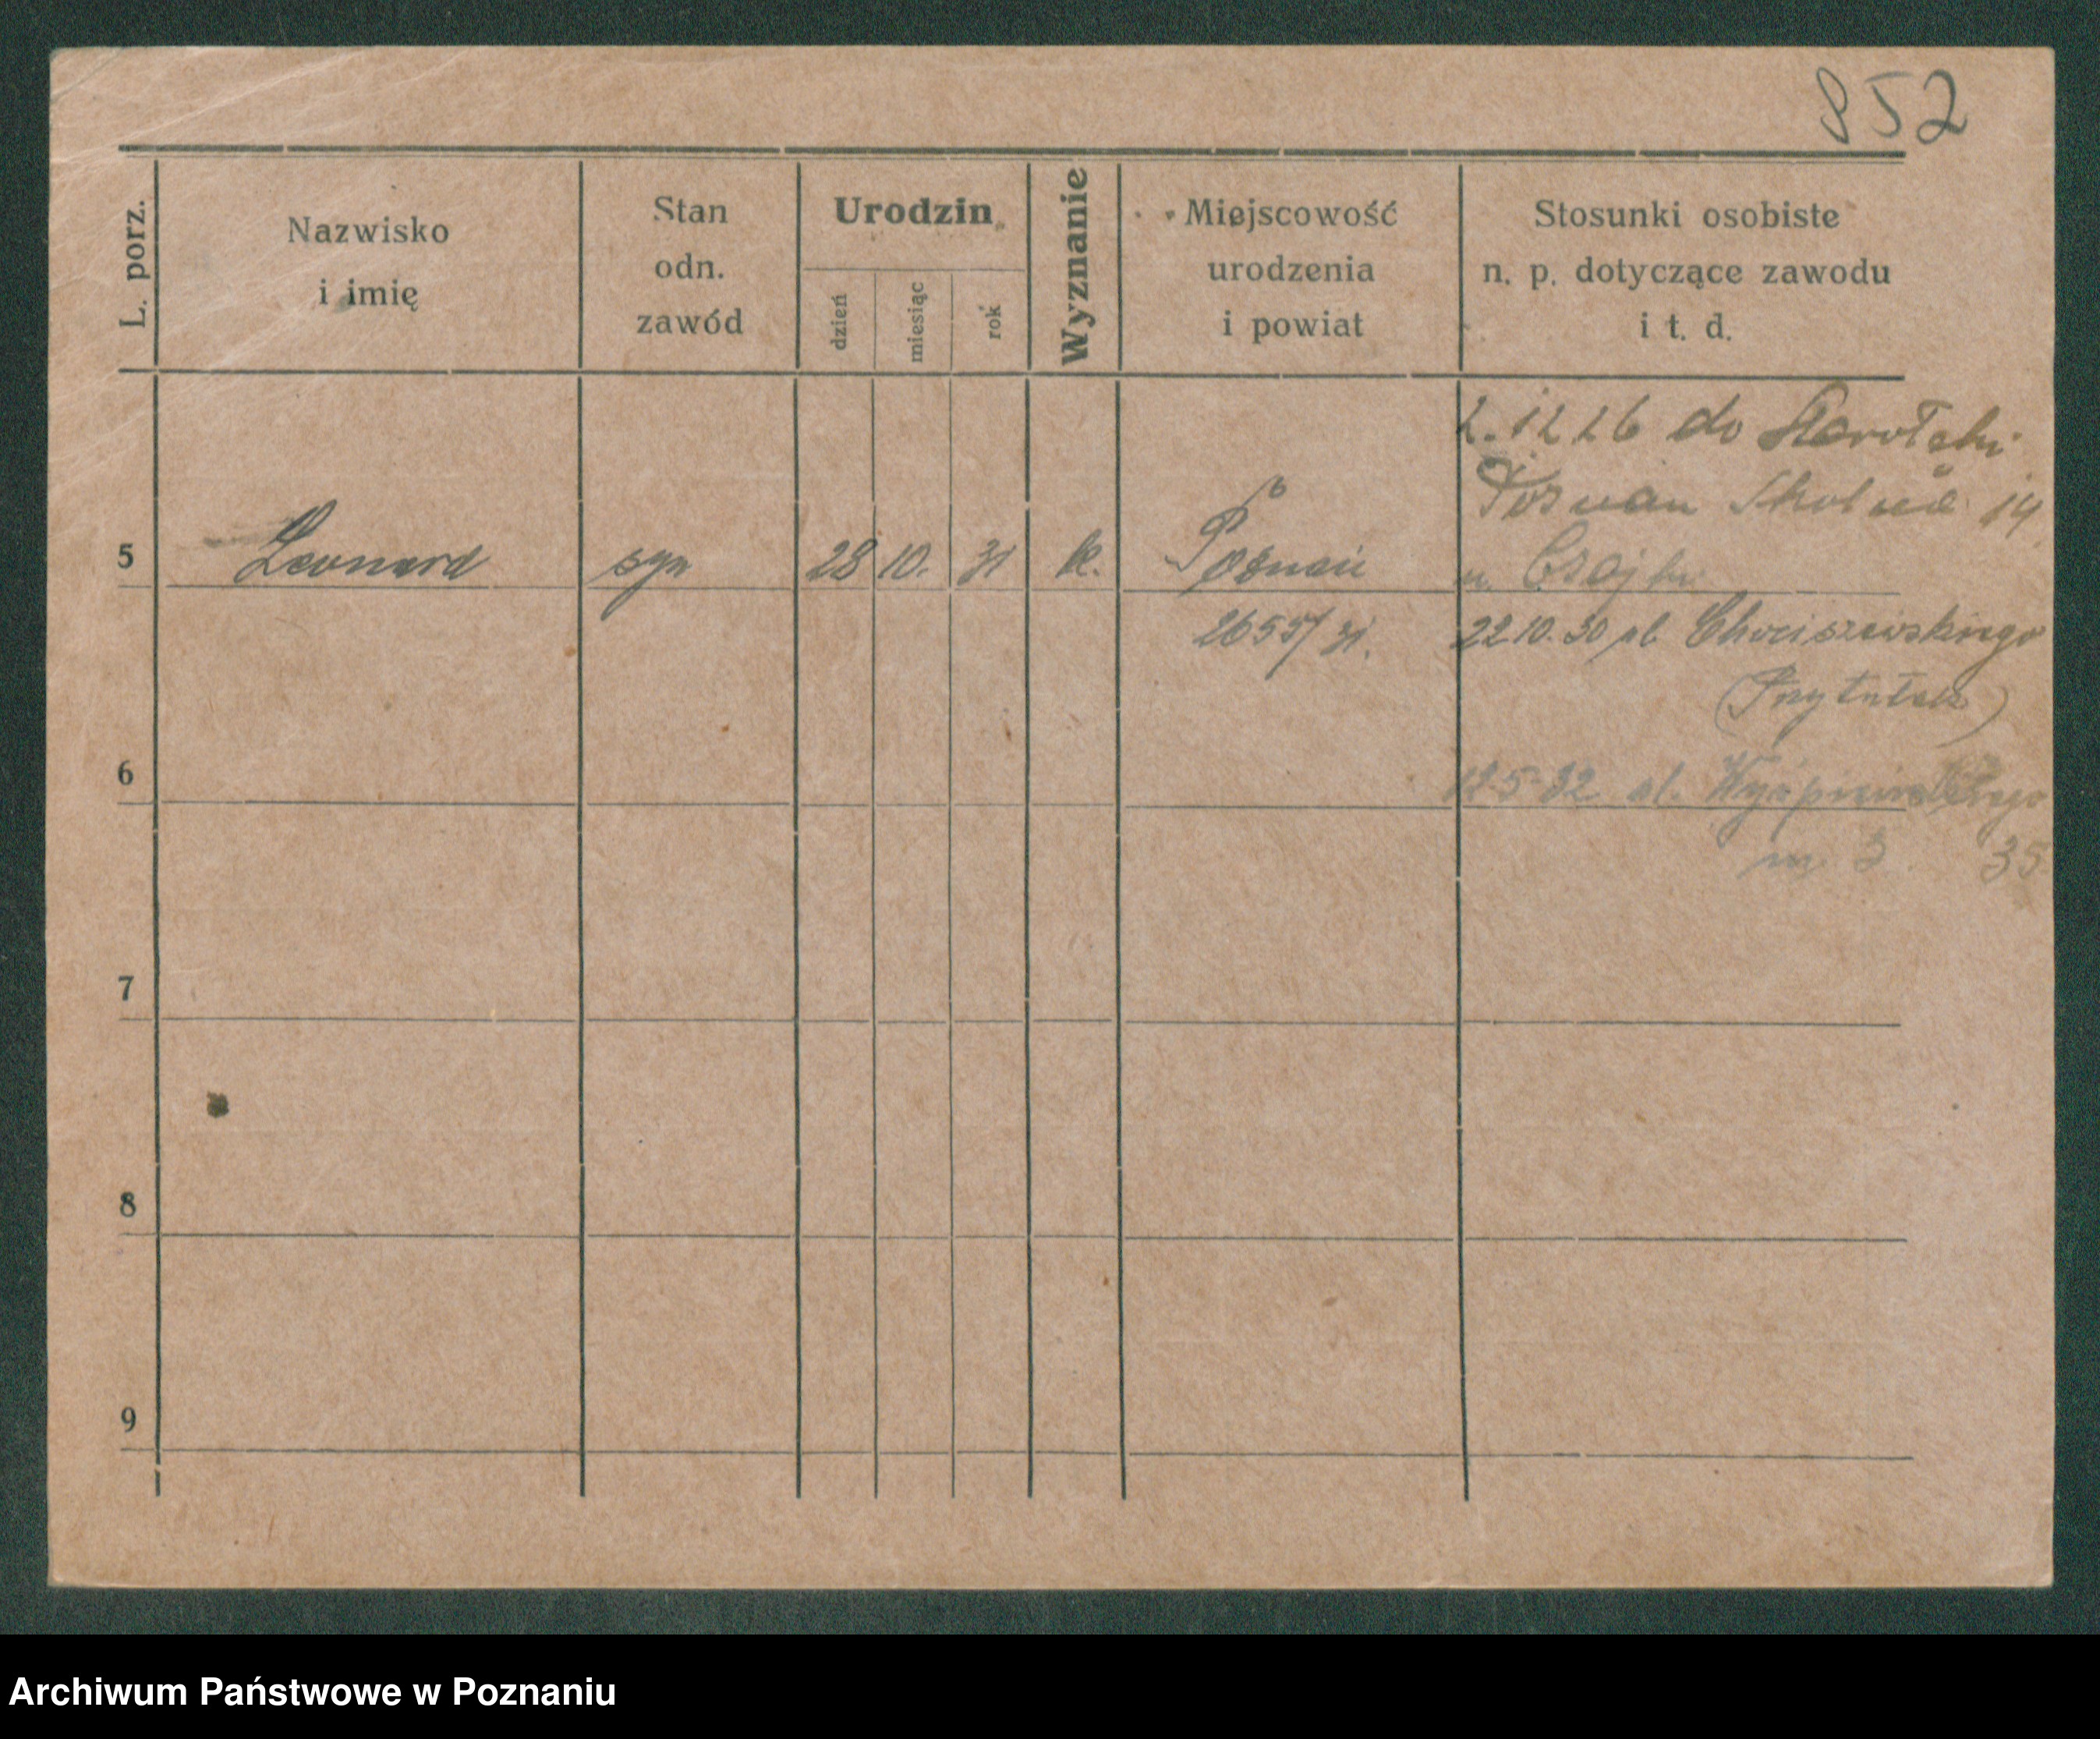 852
L. porz.
Nazwisko
i imię
Stan
odn.
zawód
Urodzin
dzień
miesiąc
rok
Wyznanie
Miejscowość
urodzenia
i powiat
Stosunki osobiste
n. p. dotyczące zawodu
i t. d.
2.12 26 do Starołęki
Poznań Skolna 14
u. Czajki
5 Leonard syn 28 10. 31 k. Poznań
2655/31.
22 10. 30 ul. Chociszewskiego
(Przytułek)
6
12 5 32 ul. Wyspiańskiego
m 3. 35
7
8
9
Archiwum Państwowe w Poznaniu